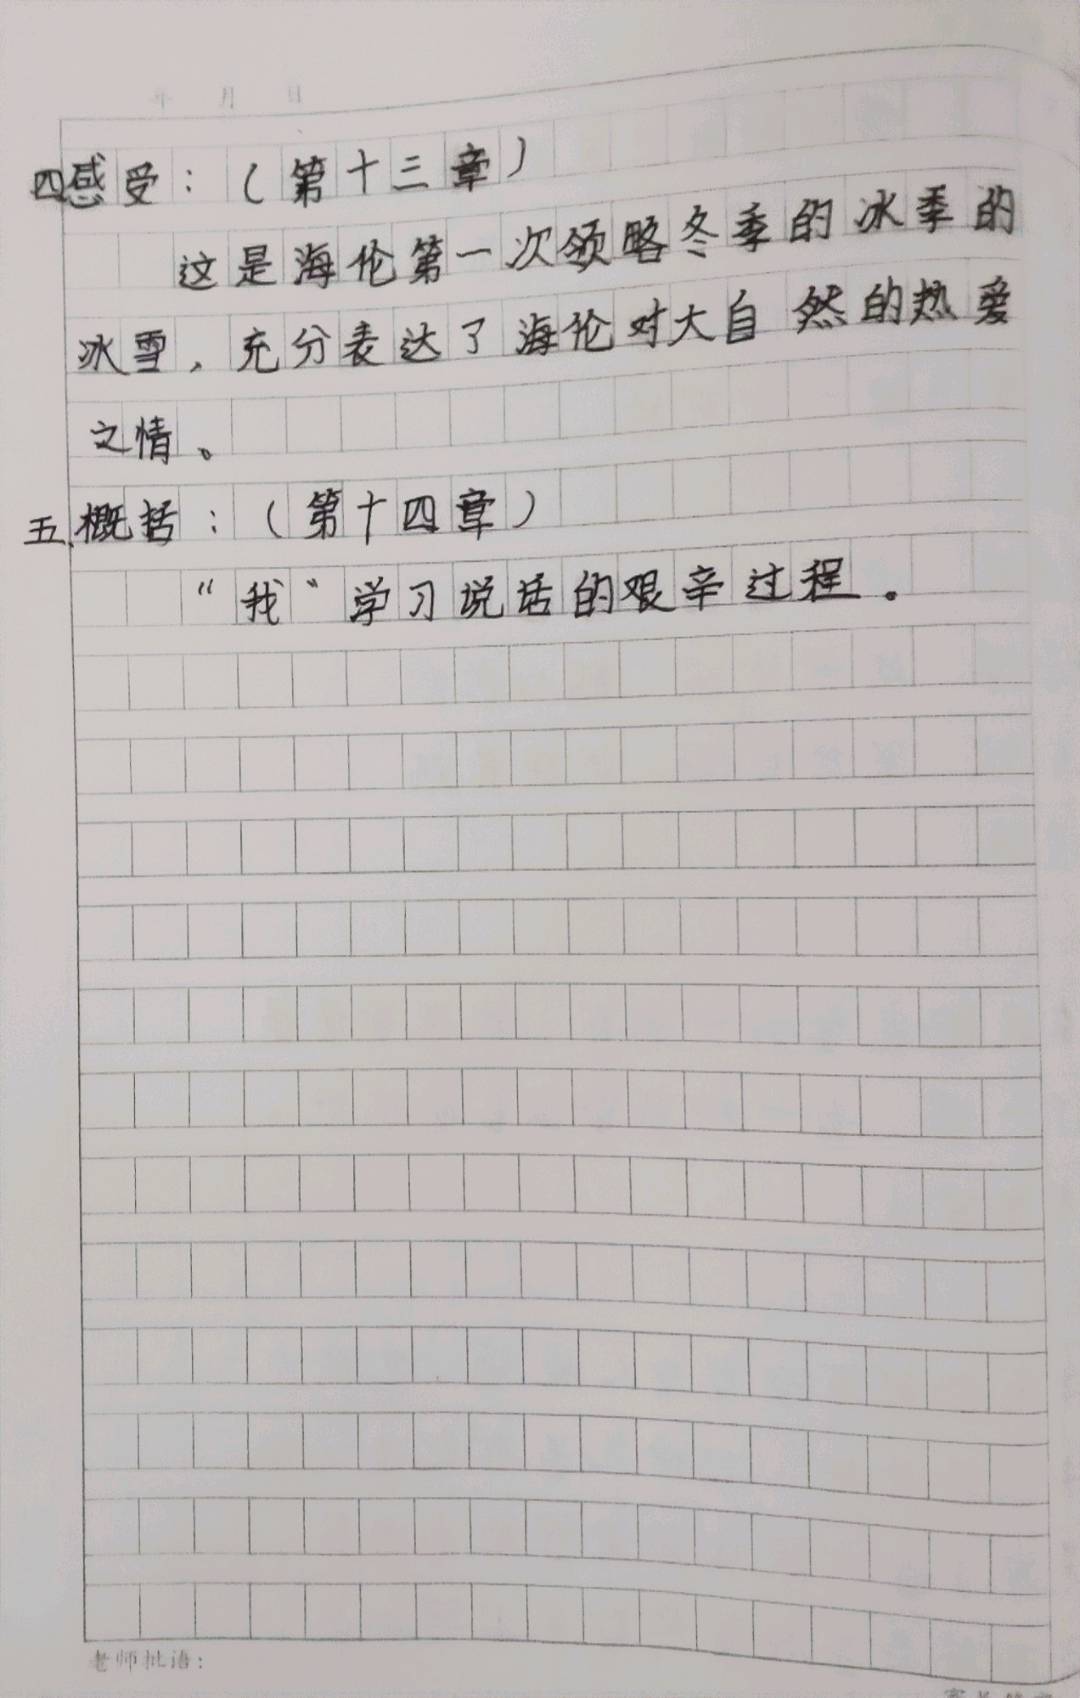 年 月 日
四感受：（第十三章）
这是海伦第一次领略冬季的冰季的
冰雪，充分表达了海伦对大自然的热爱
之情。
五.概括：（第十四章）
“我”学习说话的艰辛过程。
老师批语：